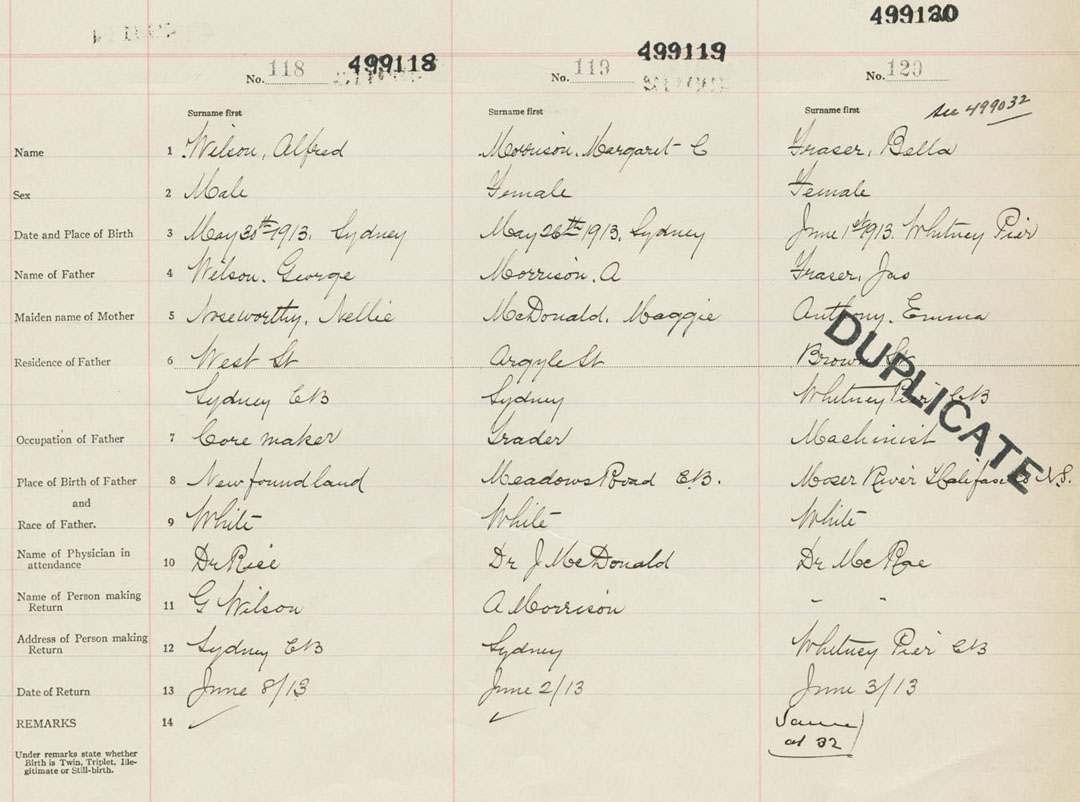 499118
499119
499120
No. 118
No. 119
No. 120
see 499032
Surname first
Surname first
Surname first
Name 1 Wilson, Alfred Morrison, Margaret C Fraser, Bella
Sex 2 Male Female Female
Date and Place of Birth 3 May 30th 1913. Sydney May 26th 1913, Sydney June 1st 1913. Whitney Pier
Name of Father 4 Wilson. George Morrison, A Fraser, Jas
Maiden name of Mother 5 Noseworthy, Nellie McDonald, Maggie Anthony, Emma
Residence of Father 6 West St Argyle St Brown St
Sydney CB Sydney Whitney Pier CB
DUPLICATE
Occupation of Father 7 Core maker Grader Machinist
Place of Birth of Father 8 Newfoundland Meadows Road C.B. Moser River Halifax N.S.
and
Race of Father. 9 White White White
Name of Physician in
attendance 10 Dr Rice Dr J McDonald Dr McRae
Name of Person making
Return 11 G Wilson A Morrison " "
Address of Person making
Return 12 Sydney CB Sydney Whitney Pier CB
Date of Return 13 June 8/13 June 2/13 June 3/13
REMARKS 14 ✓ ✓ Same
as 32
Under remarks state whether
Birth is Twin, Triplet, Ille-
gitimate or Still-birth.